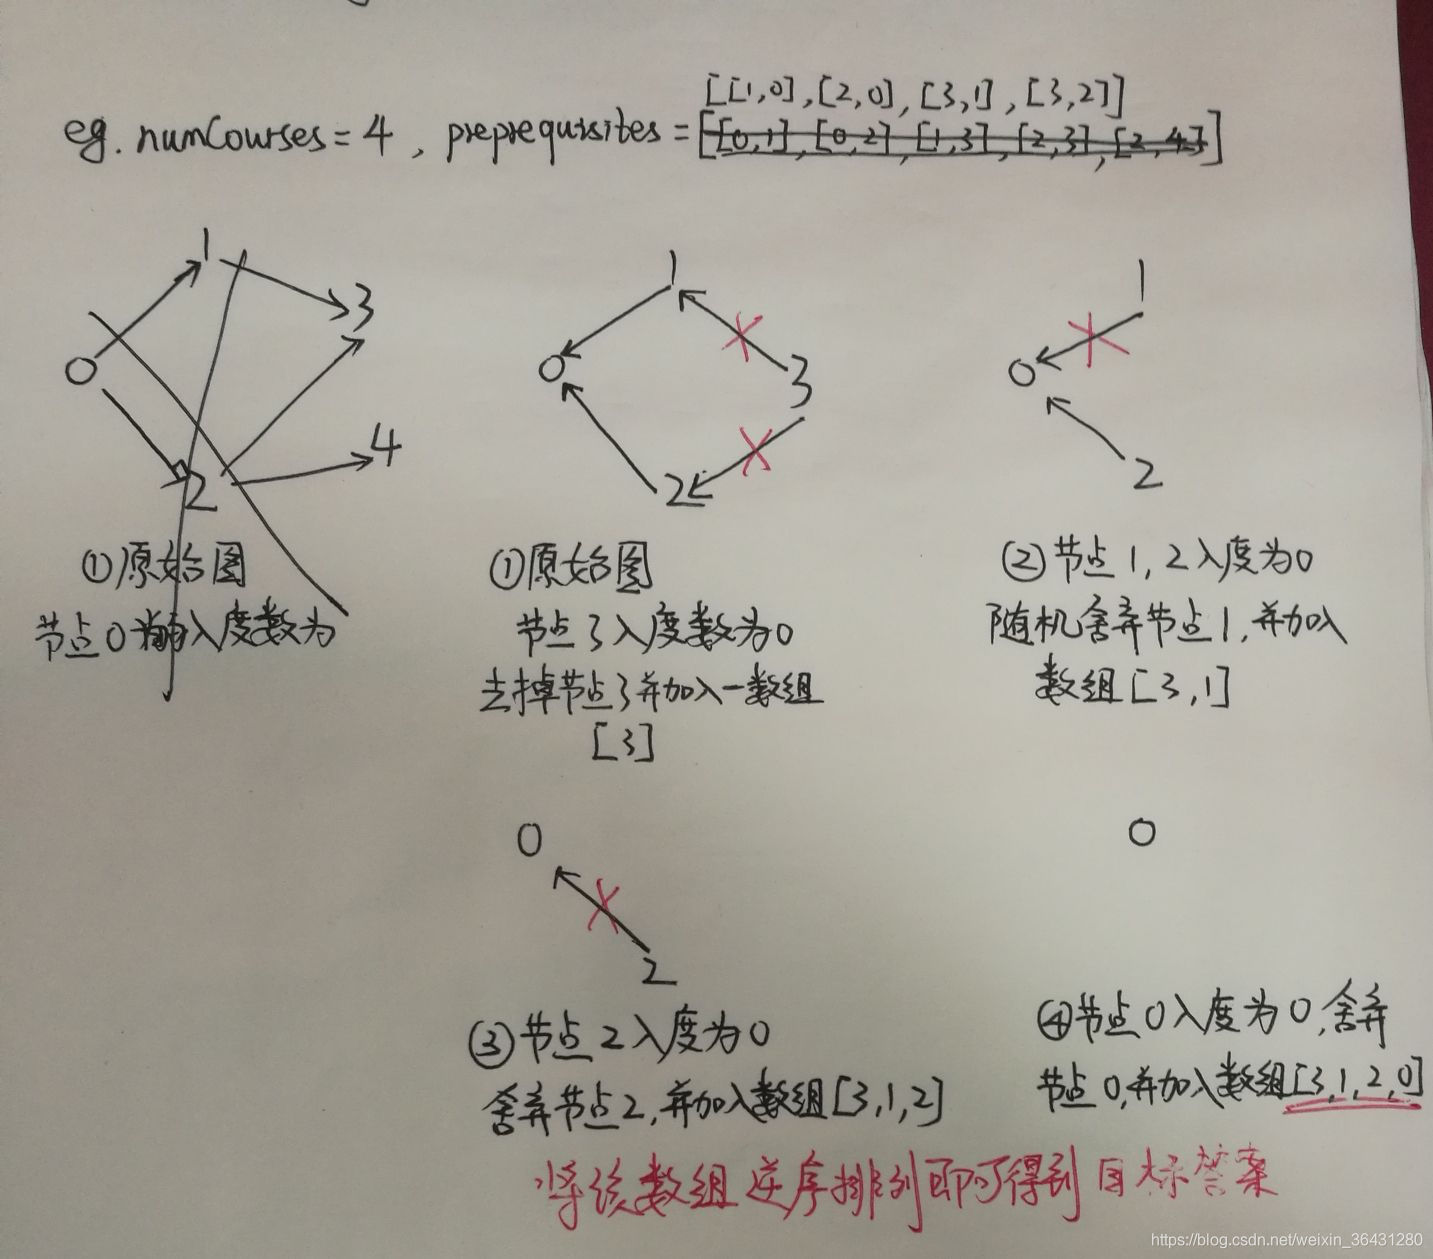 [[1,0],[2,0],[3,1],[3,2]]
eg. numCourses = 4, preprequisites = [[0,1],[0,2],[1,3],[2,3],[2,4]]
1
3
0
4
2
①原始图
节点0 入度数为
1
0
3
2
①原始图
节点3入度数为0
去掉节点3并加入一数组
[3]
1
0
2
②节点1,2入度为0
随机舍弃节点1,并加入
数组[3,1]
0
2
③节点2入度为0
舍弃节点2,并加入数组[3,1,2]
0
④节点0入度为0,舍弃
节点0,并加入数组[3,1,2,0]
将该数组逆序排列即可得到目标答案
https://blog.csdn.net/weixin_36431280